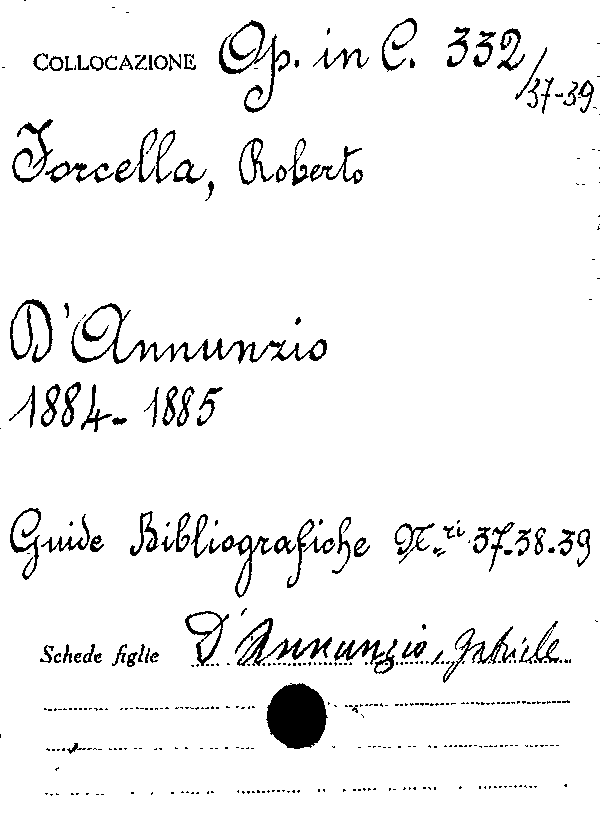 COLLOCAZIONE Op. in C. 332/37-39
Forcella, Roberto
D'Annunzio
1884-1885
Guide Bibliografiche N.ri 37-38-39
Schede figlie D'Annunzio, Gabriele